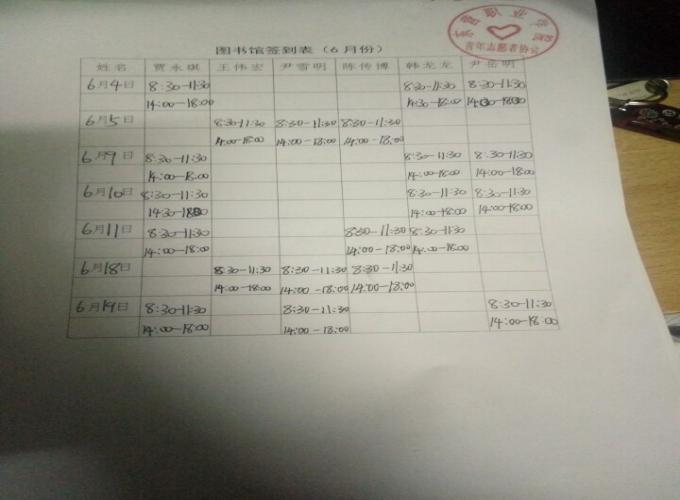 图书馆签到表（6月份）
青年志愿者协会
姓名 贾永琪 王伟宏 尹雪明 陈传博 韩龙龙 尹岳明
6月4日 8:30-11:30 8:30-11:30 8:30-11:30
14:00-18:00 14:30-18:00
6月5日 8:30-11:30 8:30-11:30 8:30-11:30
14:00-18:00 14:00-18:00 14:00-18:00
6月9日 8:30-11:30 8:30-11:30 8:30-11:30
14:00-18:00 14:00-18:00 14:00-18:00
6月10日 8:30-11:30 8:30-11:30 8:30-11:30
14:30-18:00 14:00-18:00 14:00-18:00
6月11日 8:30-11:30 8:30-11:30 8:30-11:30
14:00-18:00 14:00-18:00 14:00-18:00
6月18日 8:30-11:30 8:30-11:30 8:30-11:30
14:00-18:00 14:00-18:00 14:00-18:00
6月19日 8:30-11:30 8:30-11:30 8:30-11:30
14:00-18:00 14:00-18:00 14:00-18:00